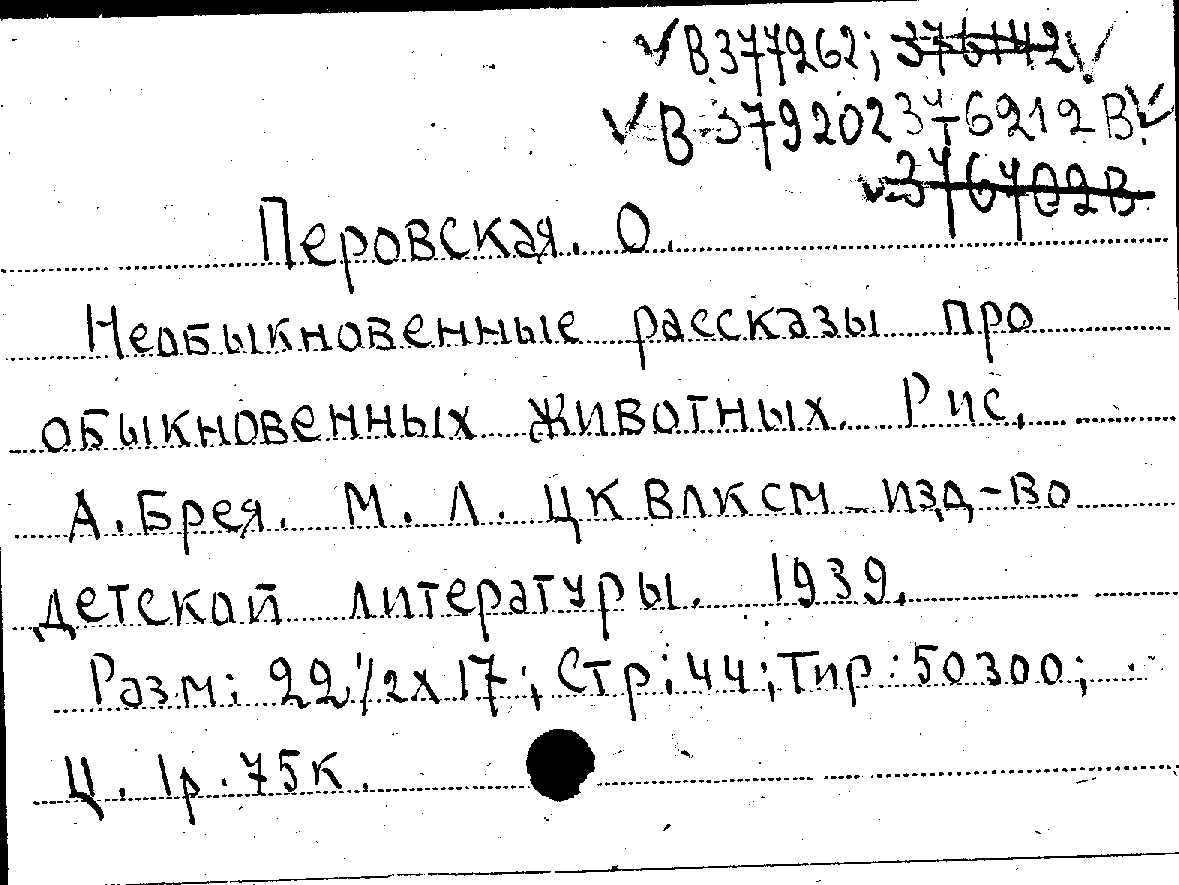 В377262; 376142
В-379202 376212 В
376702В
Перовская. О.
Необыкновенные рассказы про
обыкновенных животных. Рис.
А. Брея. М. Л. ЦК ВЛКСМ изд-во
детской литературы. 1939.
Разм: 22 1/2 х 17; Стр: 44; Тир: 50300;
Ц. 1р. 75к.